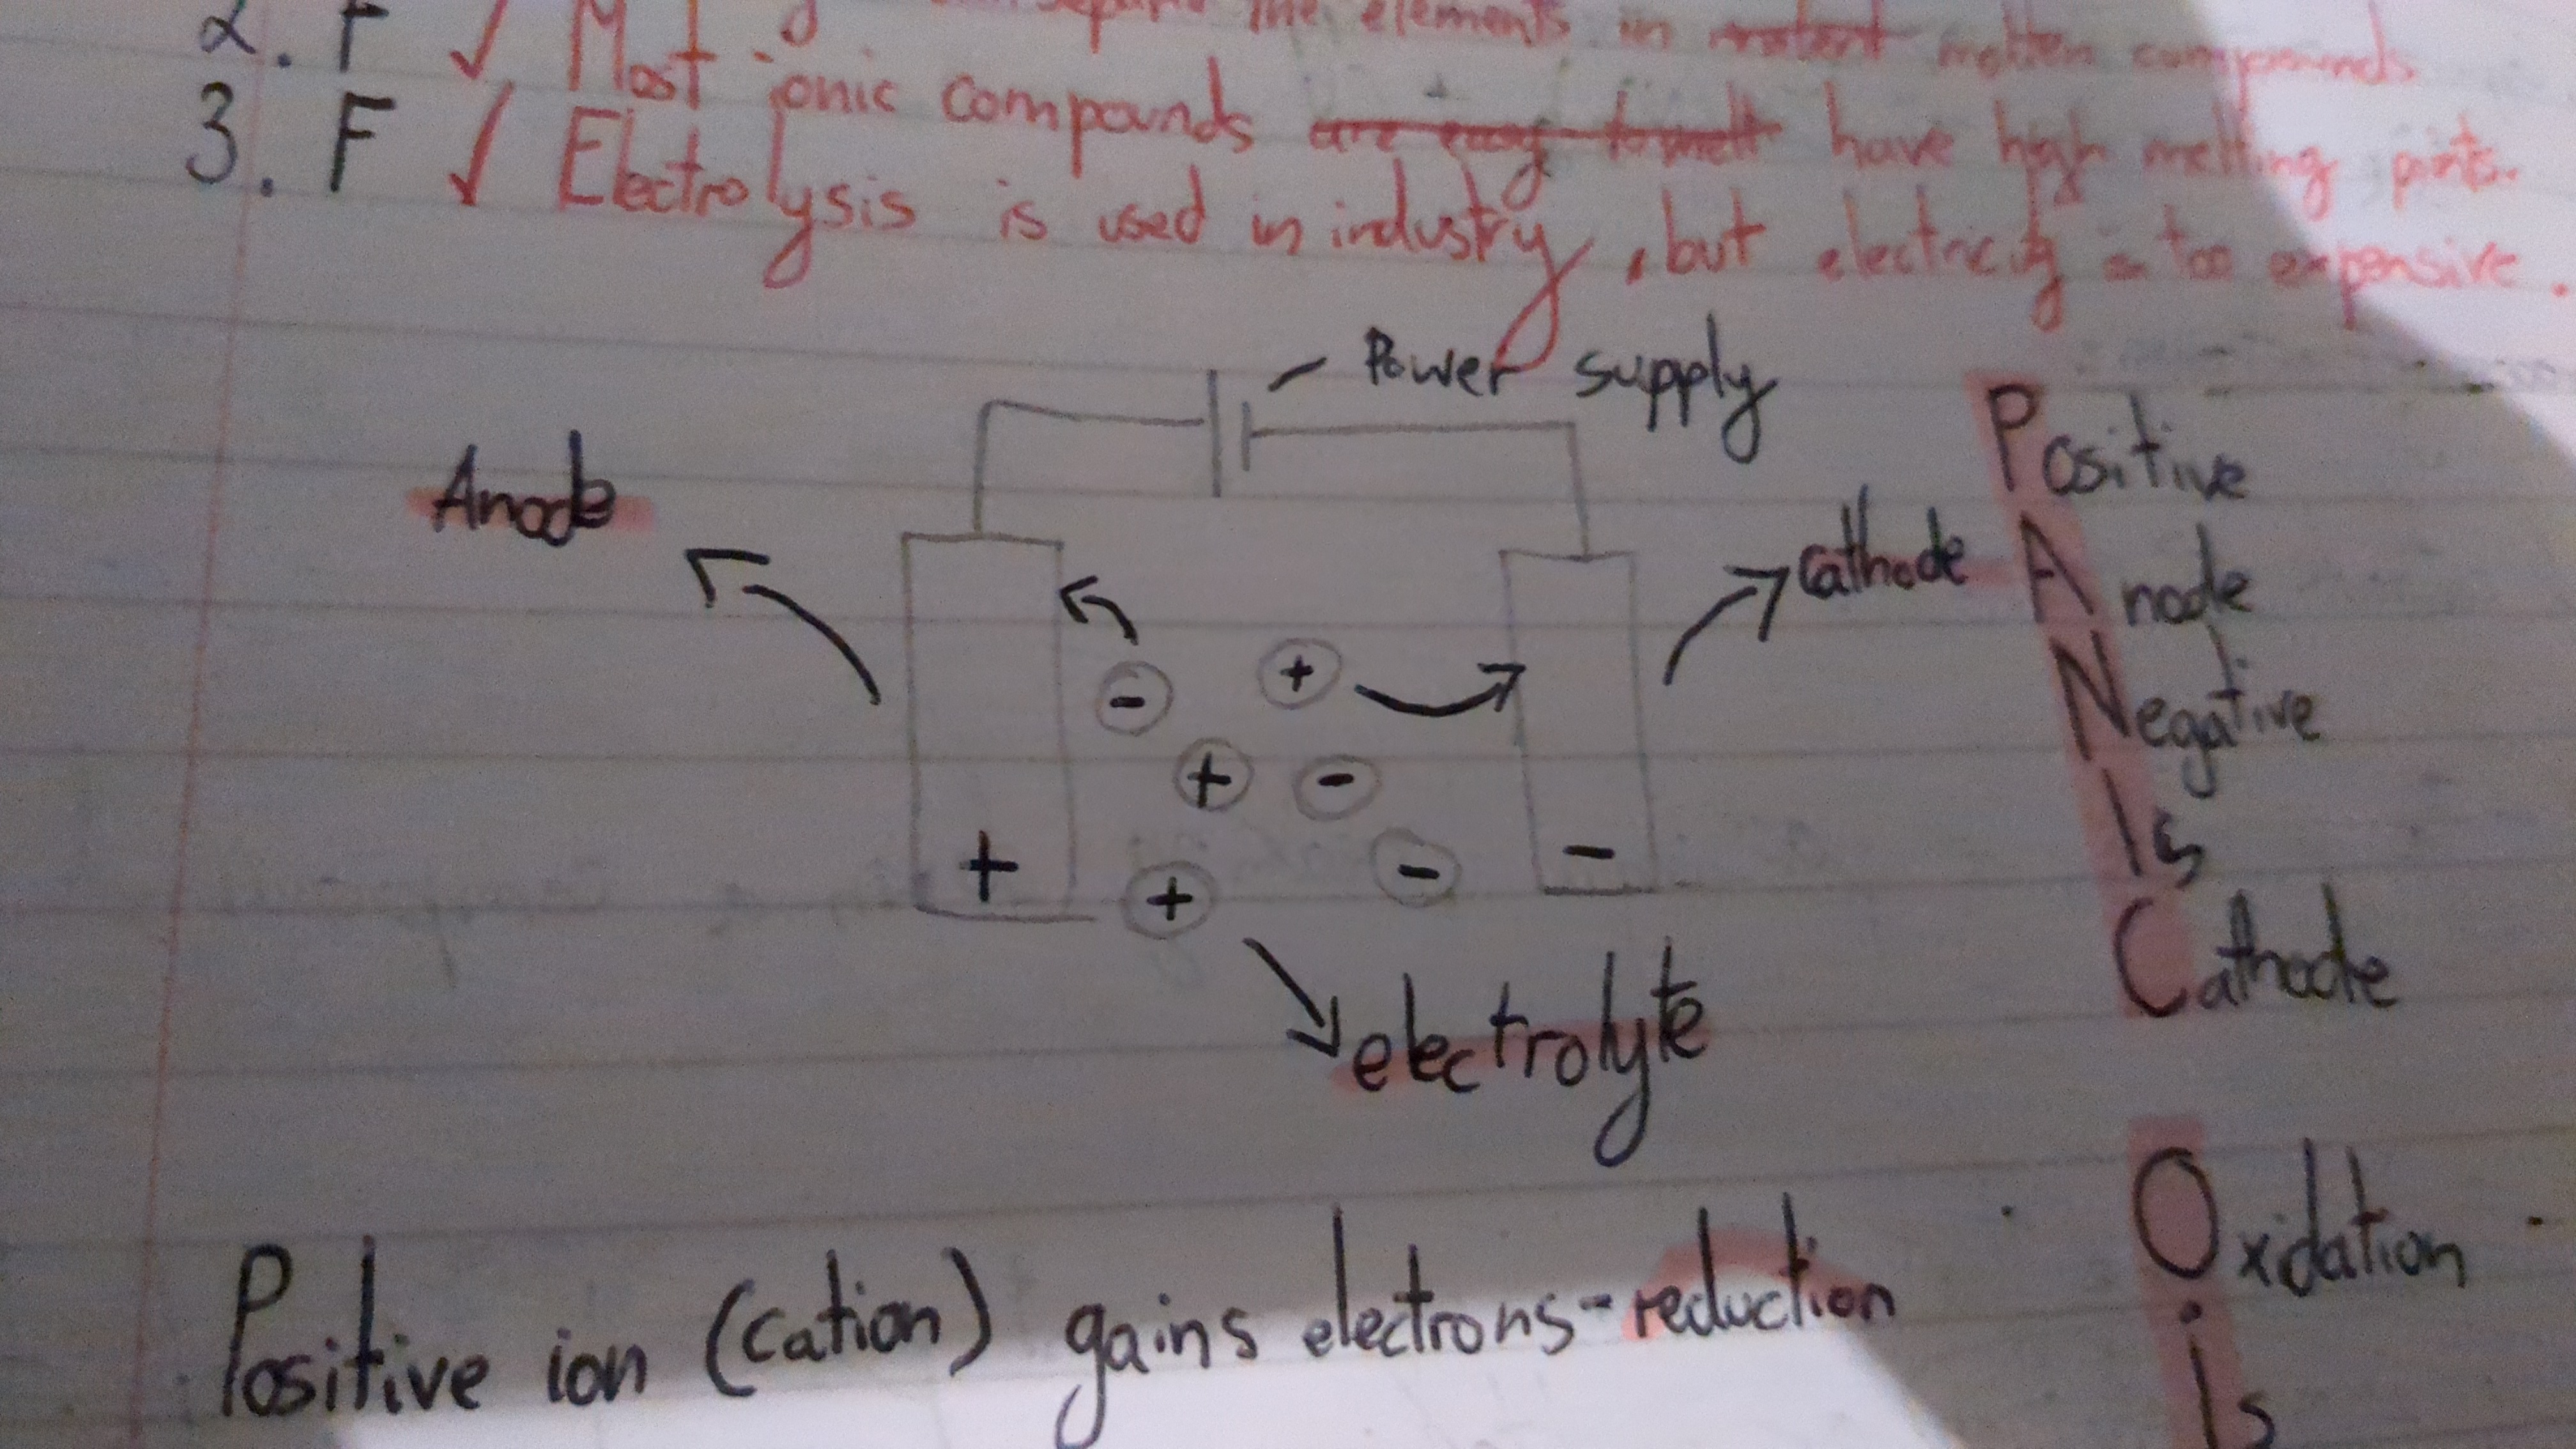 2. F ✓ Most ionic compounds are easy to melt have high melting points.
the elements in molten compounds
3. F ✓ Electrolysis is used in industry, but electricity is too expensive.
Power supply
Anode
Cathode
+
-
-
+
+
-
+
-
electrolyte
Positive
Anode
Negative
Is
Cathode
Oxidation
is
Positive ion (cation) gains electrons-reduction